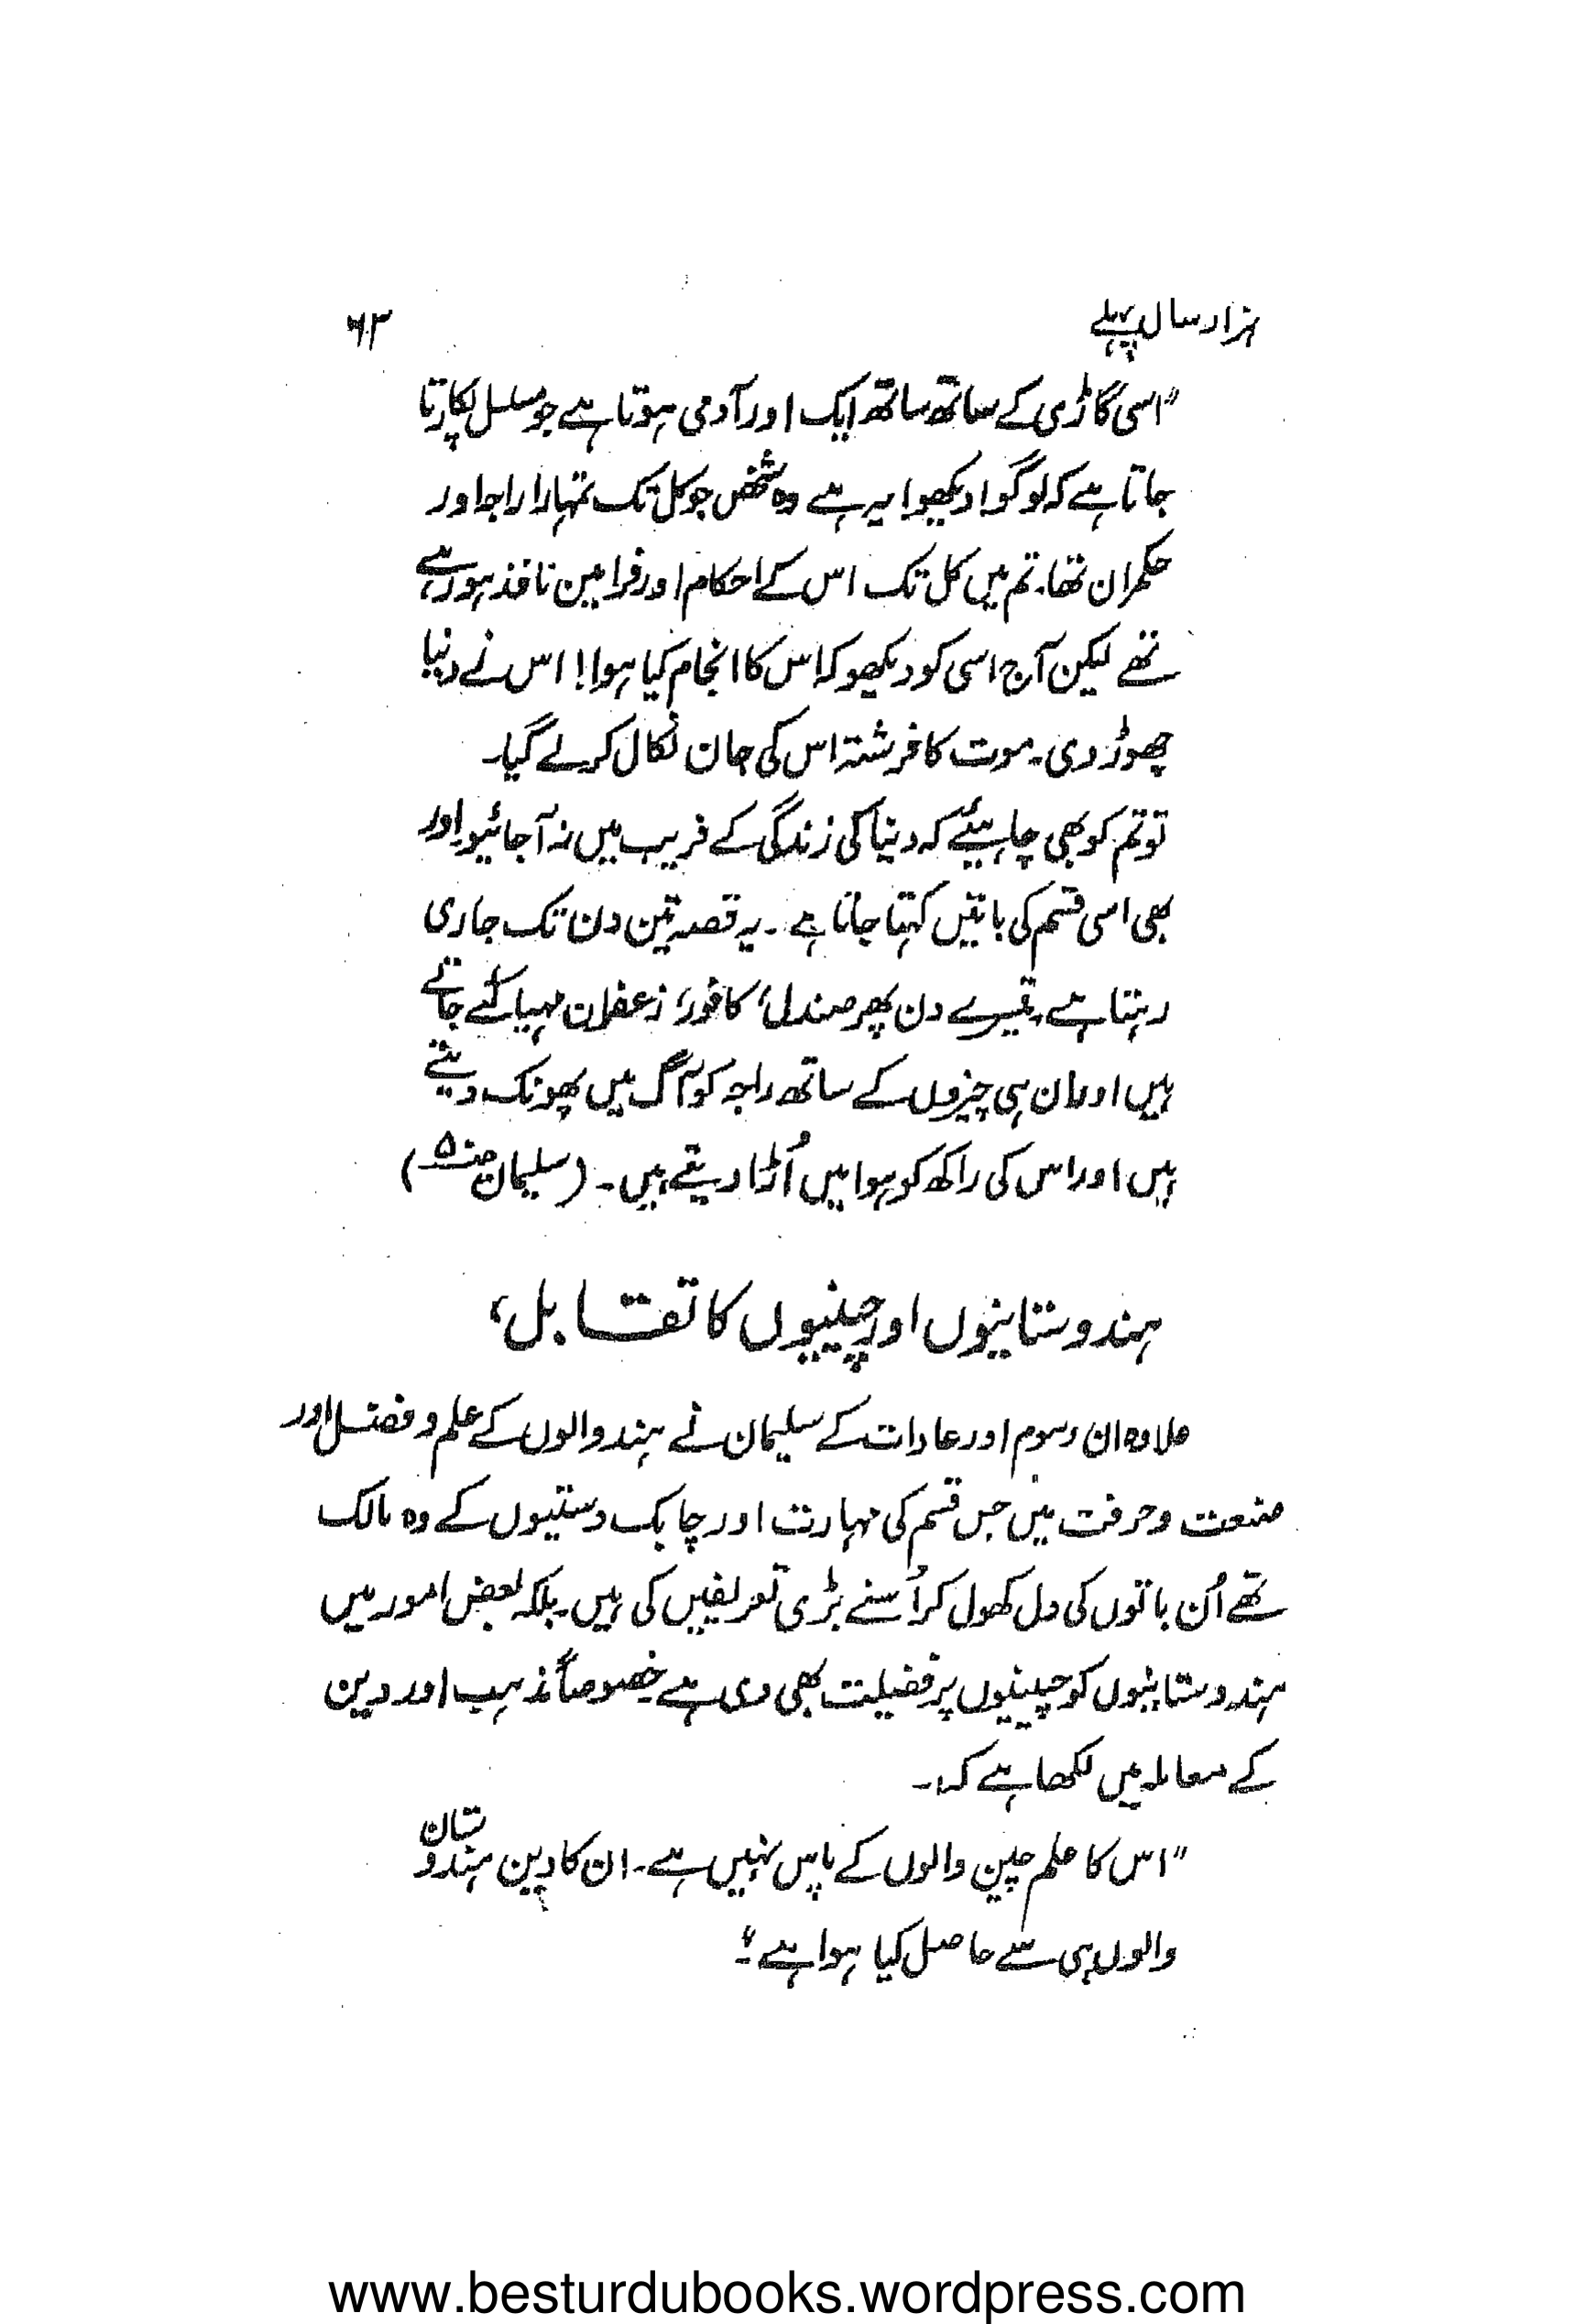 ہزار سال پہلے ۶۳
"اسی گاڑی کے ساتھ ساتھ ایک اور آدمی ہوتا ہے جو مسلسل پکارتا
جاتا ہے کہ لوگو! دیکھو! یہ ہے وہ شخص جو کل تک تمہارا راجا اور
حکمران تھا۔ تم میں کل تک اس کے احکام اور فرامین نافذ ہو رہے
تھے لیکن آج اسی کو دیکھو کہ اس کا انجام کیا ہوا! اس نے دنیا
چھوڑ دی۔ موت کا فرشتہ اس کی جان نکال کر لے گیا۔
تو تم کو بھی چاہیئے کہ دنیا کی زندگی کے فریب میں نہ آجائیو اور
بھی اسی قسم کی باتیں کہتا جاتا ہے۔ یہ قصہ تین دن تک جاری
رہتا ہے، تیسرے دن پھر صندل، کافور، زعفران مہیا کئے جاتے
ہیں اور ان ہی چیزوں کے ساتھ راجہ کو آگ میں پھونک دیتے
ہیں اور اس کی راکھ کو ہوا میں اُڑا دیتے ہیں۔ (سلیمان ص۵۰)
ہندوستانیوں اور چینیوں کا تقابل،
علاوہ ان رسوم اور عادات کے سلیمان نے ہند والوں کے علم و فضل اور
صنعت و حرفت میں جس قسم کی مہارت اور چابک دستیوں کے وہ مالک
تھے اُن باتوں کی دل کھول کر اُسنے بڑی تعریفیں کی ہیں۔ بلکہ بعض امور میں
ہندوستانیوں کو چینیوں پر فضیلت بھی دی ہے خصوصاً مذہب اور دین
کے معاملہ میں لکھا ہے کہ:۔
"اس کا علم چین والوں کے پاس نہیں ہے۔ ان کا دین ہندوستان
والوں ہی سے حاصل کیا ہوا ہے"۔
www.besturdubooks.wordpress.com